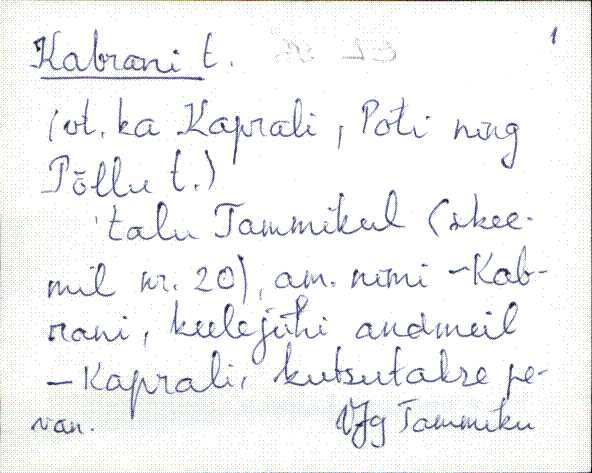 1
Kabrani t.
(vt. ka Kaprali, Poti ning
Põllu t.)
talu Tammikul (skee-
mil nr. 20), am. nimi - Kab-
rani, keelejuhi andmeil
- Kaprali, kutsutakse pe-
van.
VJg Tammiku